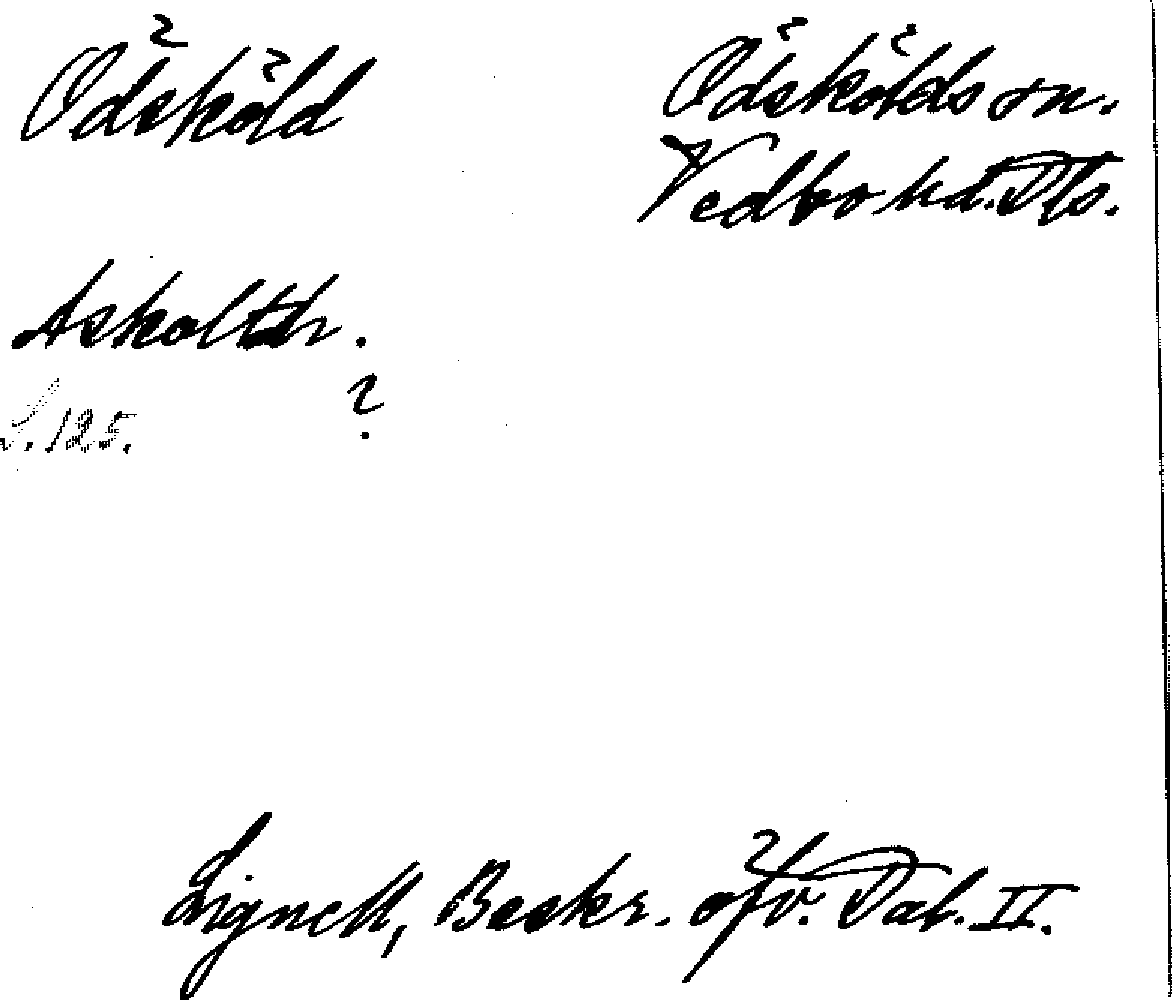 Ödsköld
Ödskölds sn.
Vedbo hd. Dls.
Askoltzr.
S. 125.
?
Lignell, Beskr. öfv. Dal. II.